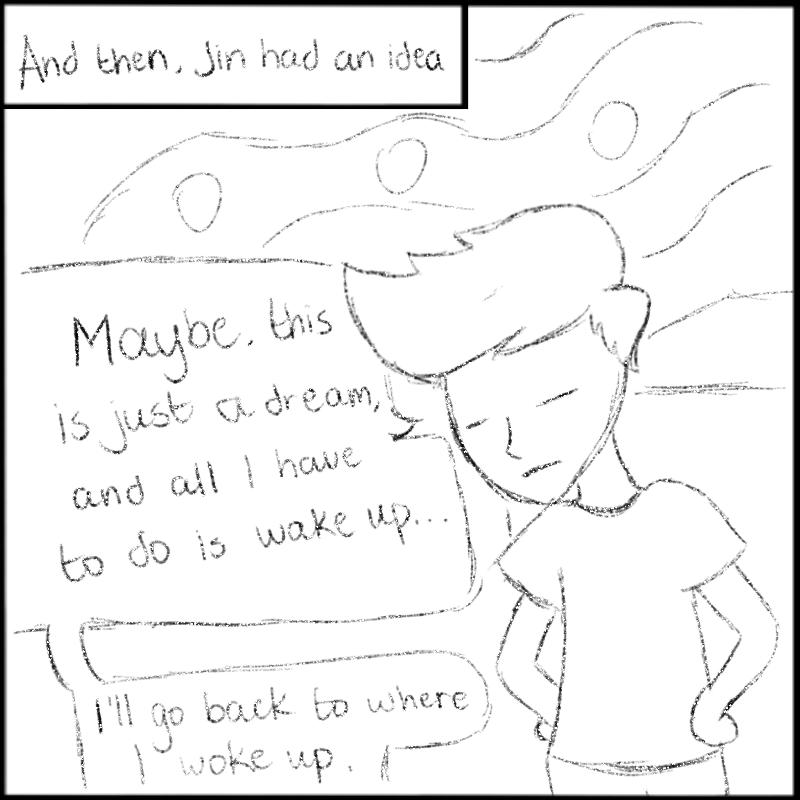 And then, Jin had an idea
Maybe, this
is just a dream,
and all I have
to do is wake up...
I'll go back to where
I woke up.